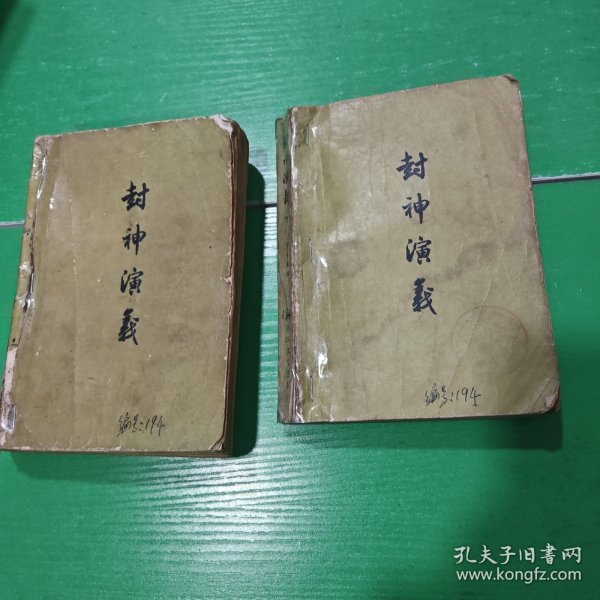 封神演義
编号:194
封神演義
编号:194
孔夫子旧书网
www.kongfz.com